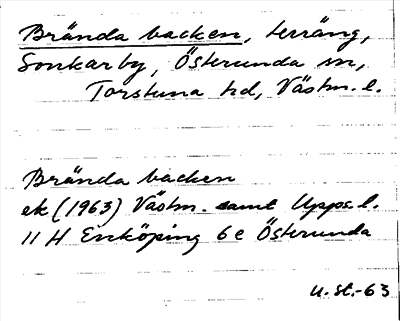 Brända backen, terräng,
Sonkarby, Österunda sn,
Torstuna hd, Västm. l.
Brända backen
ek (1963) Västm. samt Upps. l.
11 H Enköping 6 e Österunda
u. st.-63